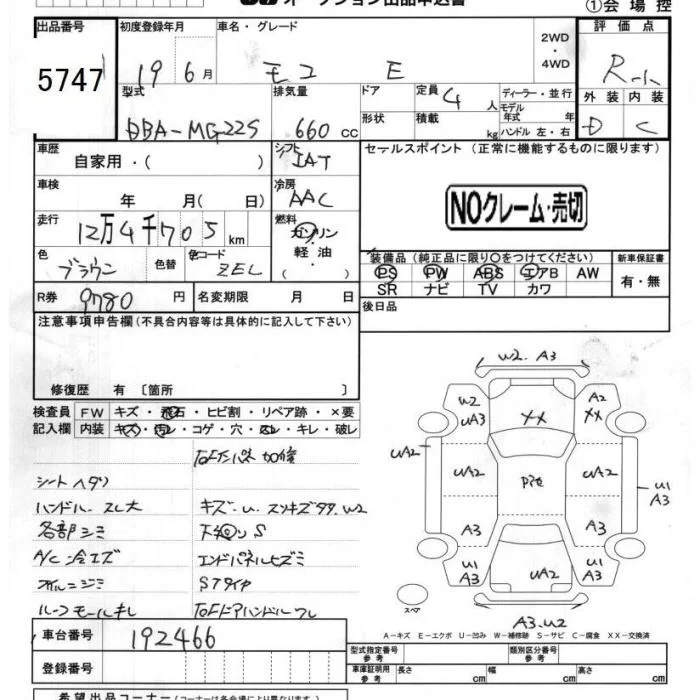 オークション出品申込書
①会場控
出品番号 初度登録年月 車名・グレード 2WD・4WD 評価点
5747 19 6月 モコ E R-
型式 排気量 ドア 定員 4人 ディーラー・並行 外装 内装
DBA-MG22S 660cc 形状 積載 kg モデル年式 年 ハンドル 左・右 D C
車歴 自家用・( ) シフト IAT セールスポイント (正常に機能するものに限ります)
車検 年 月( 日) 冷房 AAC
NOクレーム・売切
走行 12万4千705km 燃料 ガソリン・軽油・( )
色 ブラウン 色替 色コード ZEL
装備品(純正品に限り○をつけてください) 新車保証書
PS PW ABS エアB AW 有・無
SR ナビ TV カワ
R券 9780円 名変期限 月 日 後日品
注意事項申告欄(不具合内容等は具体的に記入して下さい)
修復歴 有 〔箇所 〕
検査員記入欄 FW キズ・飛石・ヒビ割・リペア跡・×要
内装 キズ・汚レ・コゲ・穴・スレ・キレ・破レ
シートヘタリ
ハンドル スレ大 キズ・U.スリキズタタ.W2
各部シミ 下廻リS
A/C冷エズ エンドパネルヒズミ
オイルニジミ Sタイヤ
ルーフモールキレ
W2.A3
W2 UA3 XX A2 XX
UA2 UA2 UA2 U1 A3
A3 A3
U1 A3 UA2 U1 A3
スペア
A3.U2
A-キズ E-エクボ U-凹み W-補修跡 S-サビ C-腐食 XX-交換済
車台番号 192466
型式指定番号 参考 類別区分番号 参考
登録番号 車庫証明用 参考 長さ cm 幅 cm 高さ cm
希望出品コーナー(コーナーは各会場により異なります。)